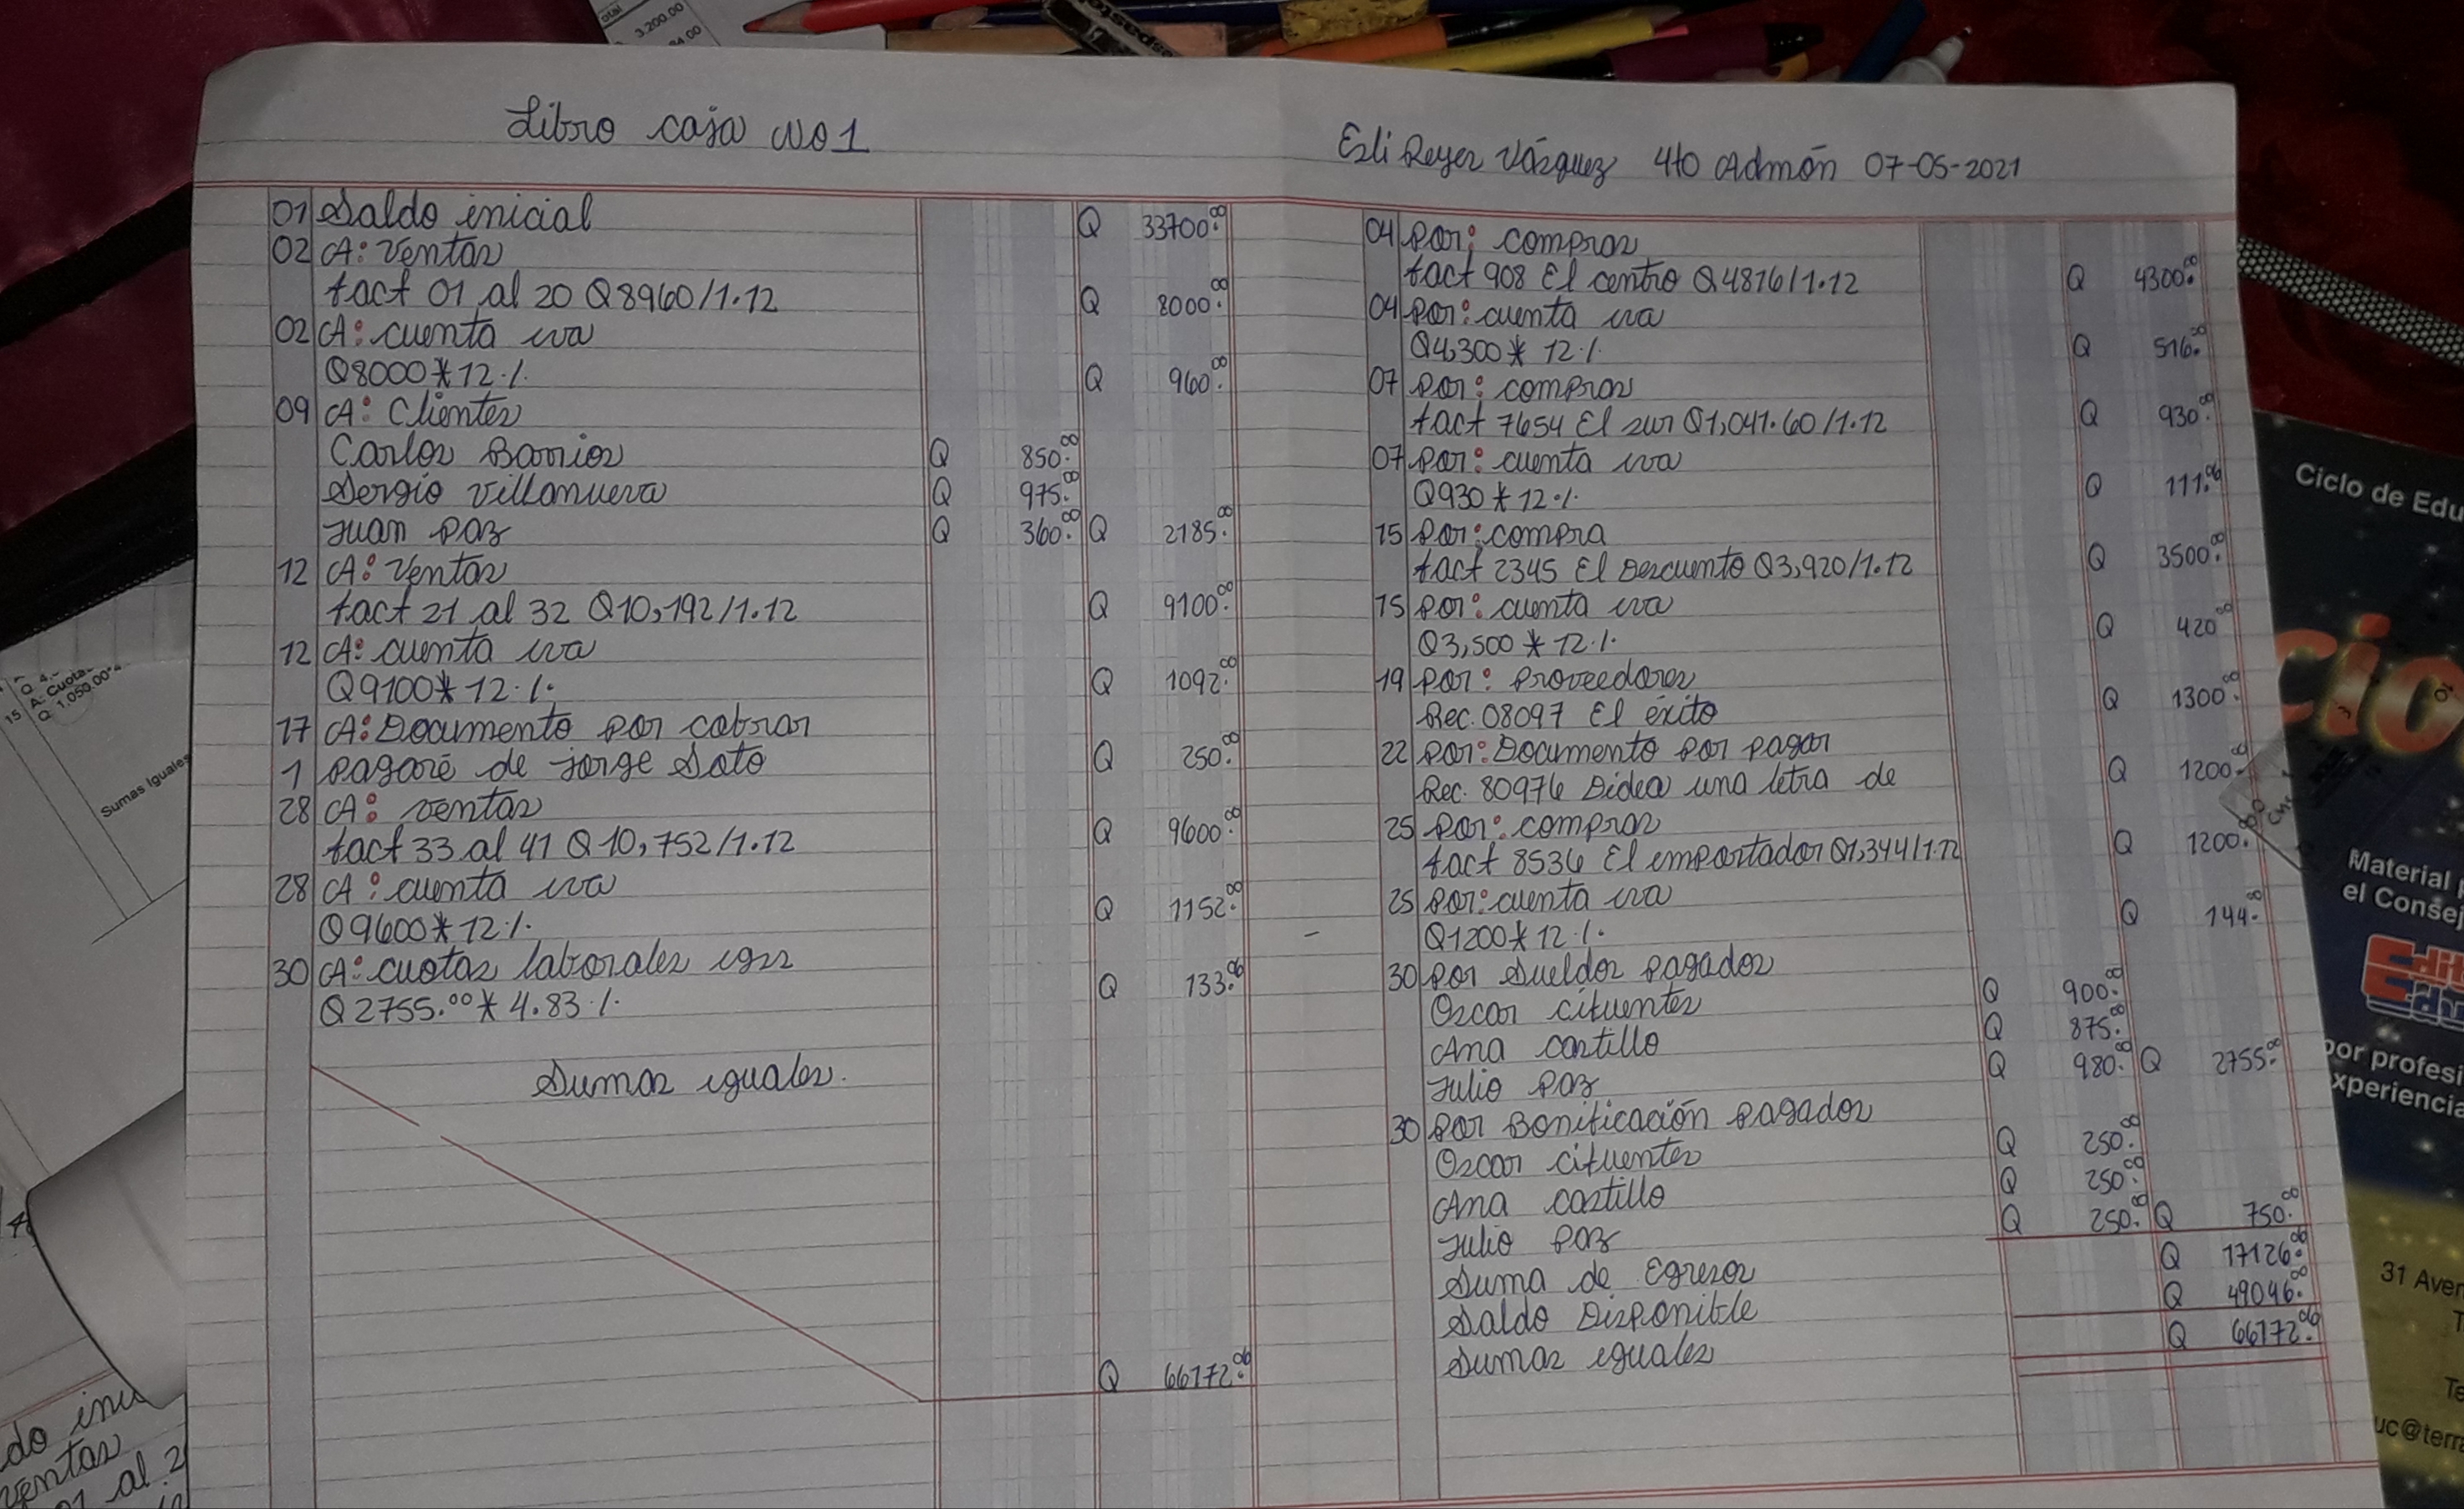 Libro caja No 1
Esli Reyes Vásquez 4to Admón 07-05-2021
01 Saldo inicial Q 33700.00
02 A: Ventas
fact 01 al 20 Q8960/1.12 Q 8000.00
02 A: cuenta iva
Q8000*12% Q 960.00
09 A: Clientes
Carlos Barrios Q 850.00
Sergio Villanueva Q 975.00
Juan Paz Q 360.00 Q 2185.00
12 A: Ventas
fact 21 al 32 Q10,192/1.12 Q 9100.00
12 A: cuenta iva
Q9100*12% Q 1092.00
17 A: Documento por cobrar
1 pagaré de Jorge Soto Q 250.00
28 A: ventas
fact 33 al 41 Q10,752/1.12 Q 9600.00
28 A: cuenta iva
Q9600*12% Q 1152.00
30 A: cuotas laborales igss
Q2755.00*4.83% Q 133.06
Sumas iguales.
Q 66172.06
04 Por: compras
fact 908 El centro Q4816/1.12 Q 4300.00
04 Por: cuenta iva
Q4,300*12% Q 516.00
07 Por: compras
fact 7654 El sur Q1,041.60/1.12 Q 930.00
07 Por: cuenta iva
Q930*12% Q 111.06
15 Por: compra
fact 2345 El Descuento Q3,920/1.12 Q 3500.00
15 Por: cuenta iva
Q3,500*12% Q 420.00
19 Por: Proveedores
Rec. 08097 El éxito Q 1300.00
22 Por: Documento por pagar
Rec. 80976 Didea una letra de Q 1200.00
25 Por: compras
fact 8536 El importador Q1,344/1.12 Q 1200.00
25 Por: cuenta iva
Q1200*12% Q 144.00
30 Por Sueldos pagados
Oscar cifuentes Q 900.00
Ana castillo Q 875.00
Julio Paz Q 980.00 Q 2755.00
30 Por Bonificación pagados
Oscar cifuentes Q 250.00
Ana castillo Q 250.00
Julio Paz Q 250.00 Q 750.00
Suma de Egresos Q 17126.06
Saldo Disponible Q 49046.00
Sumas iguales Q 66172.06
3,200.00
15 A: Cuota
Q. 1,050.00*
Sumas Iguales
Ciclo de Edu
cio
Material
el Conse
Edit
Edu
por profesi
xperiencia
31 Aven
uc@terra
do ini
ventas
01 al 2